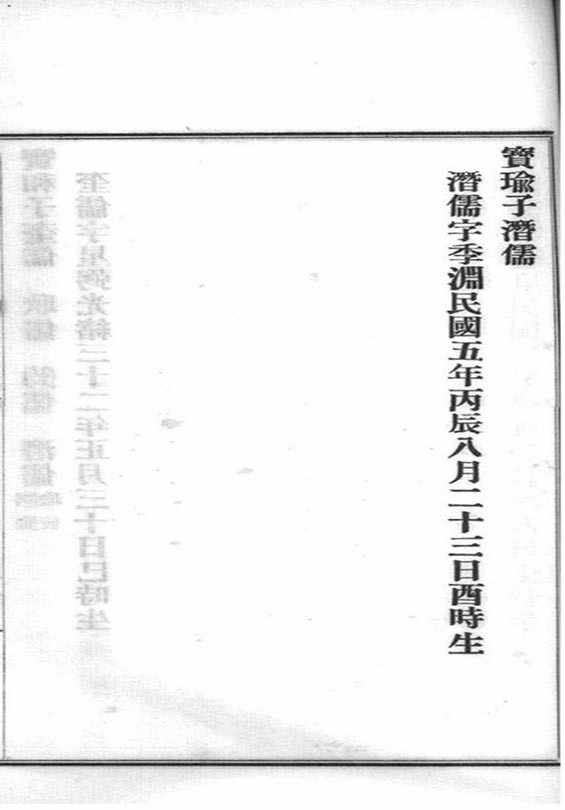 寶瑜子潛儒
潛儒字季淵民國五年丙辰八月二十三日酉時生